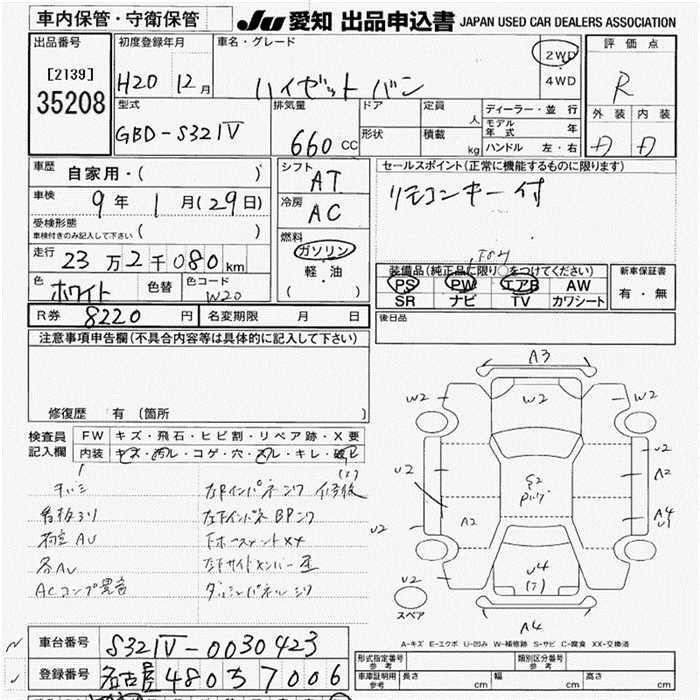 車内保管・守衛保管
JU 愛知 出品申込書 JAPAN USED CAR DEALERS ASSOCIATION
出品番号
[2139]
35208
初度登録年月
H20 12月
車名・グレード
ハイゼット バン
2WD
4WD
評価点
R
型式
GBD-S321V
排気量
660 CC
ドア
形状
定員
人
積載
kg
ディーラー・並行
モデル年式 年
ハンドル 左・右
外装 内装
車歴
自家用・( )
車検
9年 1月(29日)
受検形態
車検付きのみ記入して下さい ( )
走行
23万2千080km
色
ホワイト
色替
色コード
W20
シフト
AT
冷房
AC
燃料
ガソリン
軽・油
( )
セールスポイント(正常に機能するものに限ります)
リモコンキー付
装備品(純正品に限り○をつけてください)
PS PW エアB AW
SR ナビ TV カワシート
新車保証書
有・無
R券 8220円
名変期限 月 日
後日品
注意事項申告欄(不具合内容等は具体的に記入して下さい)
修復歴 有(箇所
検査員
記入欄
FW キズ・飛石・ヒビ割・リペア跡・X要
内装 キズ・汚レ・コゲ・穴・スレ・キレ・破レ
ACコンプ異音
A3
W2
W2
W2
U2
U2
A2
A4
U2
A2
U2
U4
A4
スペア
A-キズ E-エクボ U-凹み W-補修跡 S-サビ C-腐食 XX-交換済
車台番号
S321V-0030423
登録番号
名古屋 480 ち 7006
形式指定番号
参考
類別区分番号
参考
車庫証明用
参考
長さ cm
幅 cm
高さ cm